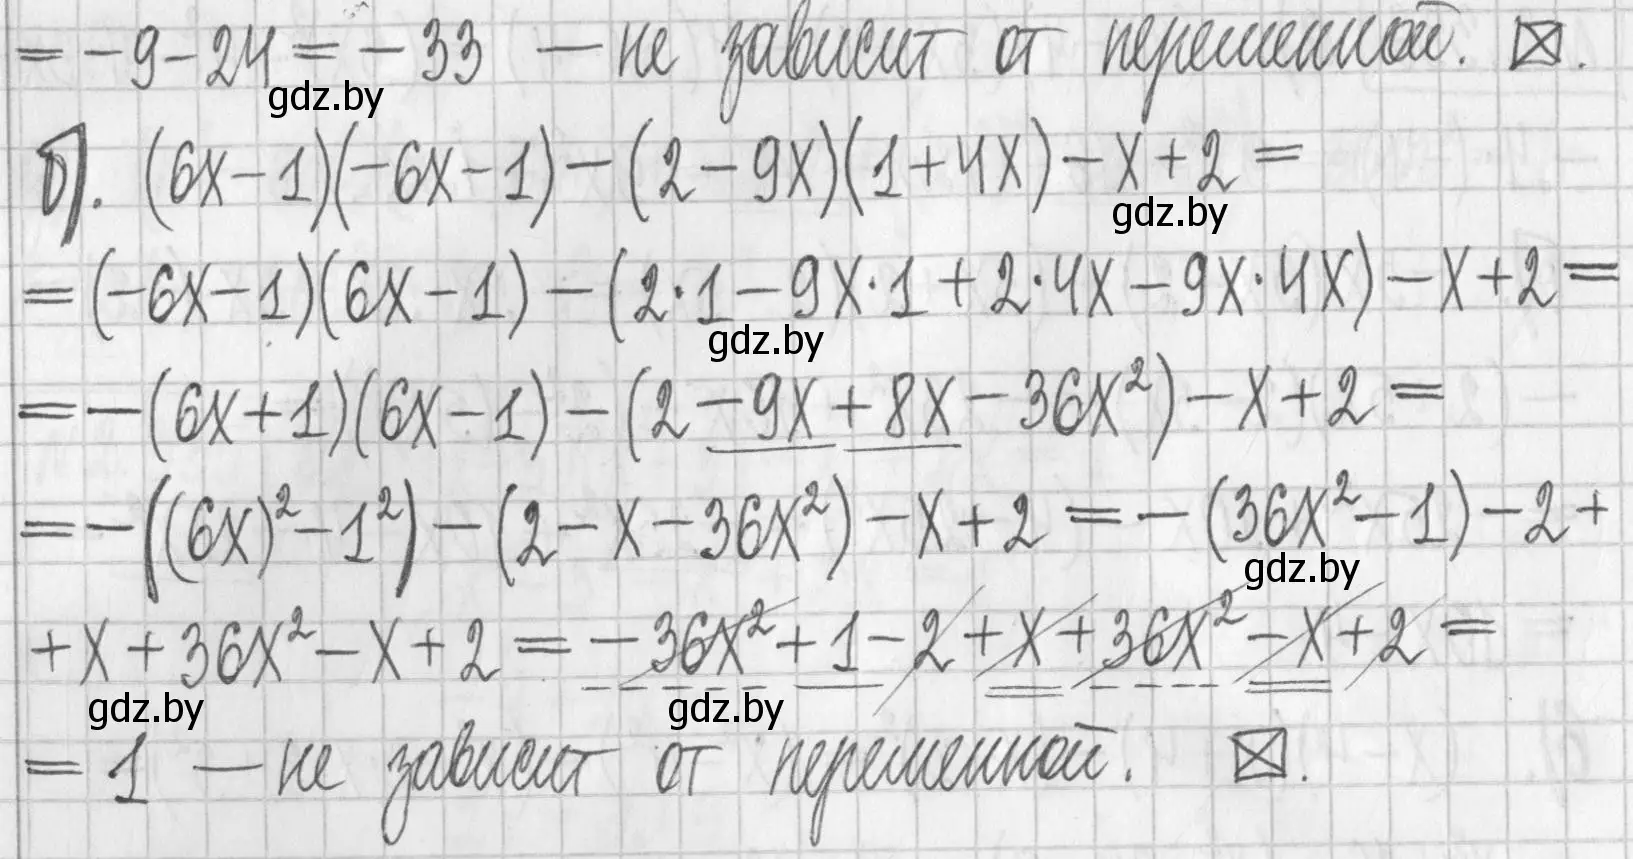 = -9-24 = -33 — не зависит от переменной. ⊠.
gdz.by
б). (6x-1)(-6x-1)-(2-9x)(1+4x)-x+2=
gdz.by
=(-6x-1)(6x-1)-(2·1-9x·1+2·4x-9x·4x)-x+2=
gdz.by
=-(6x+1)(6x-1)-(2-9x+8x-36x²)-x+2=
=-((6x)²-1²)-(2-x-36x²)-x+2=-(36x²-1)-2+
gdz.by
+x+36x²-x+2=-36x²+1-2+x+36x²-x+2=
gdz.by gdz.by
= 1 — не зависит от переменной. ⊠.